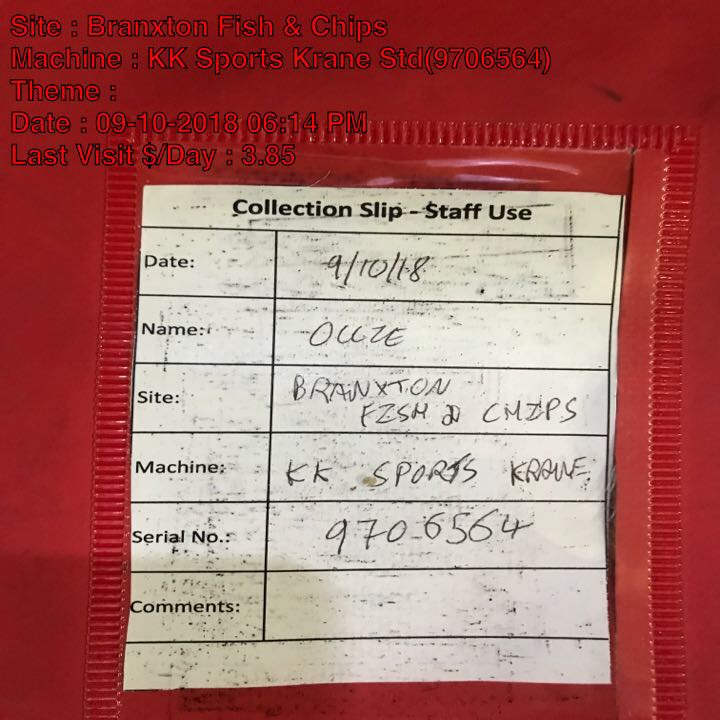 Site : Branxton Fish & Chips
Machine : KK Sports Krane Std(9706564)
Theme :
Date : 09-10-2018 06:14 PM
Last Visit $/Day : 3.85
Collection Slip - Staff Use
Date: 9/10/18
Name: OLLIE
Site: BRANXTON
FISH & CHIPS
Machine: KK SPORTS KRANE
Serial No.: 9706564
Comments: